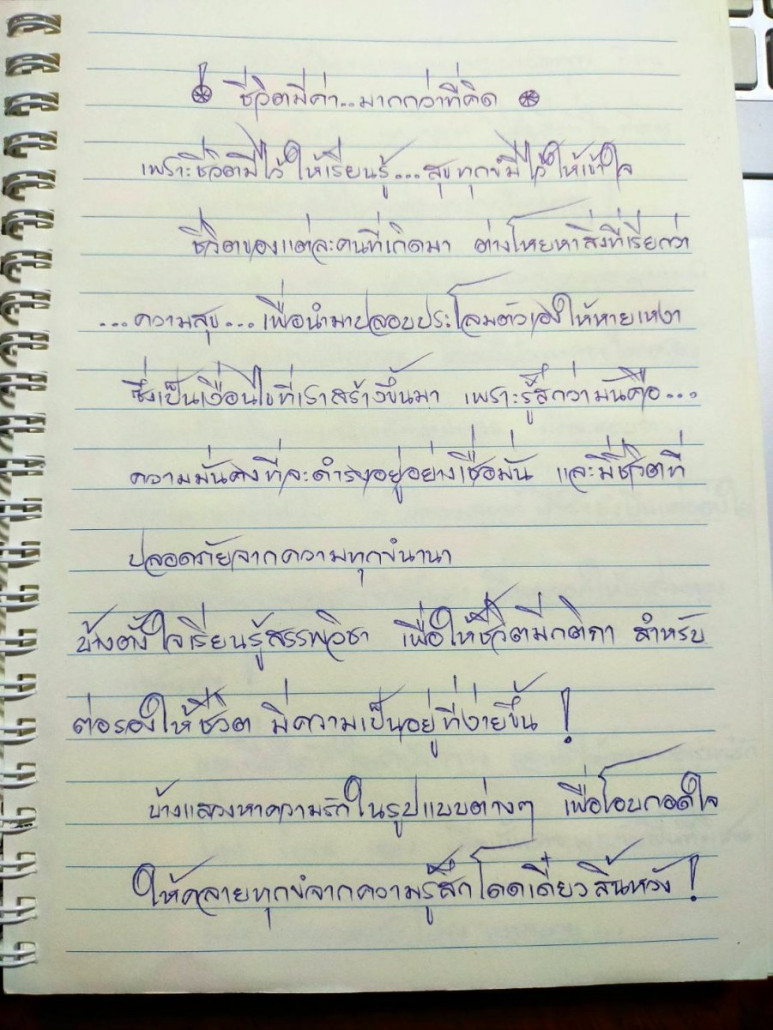 ชีวิตมีค่า..มากกว่าที่คิด
เพราะชีวิตมีไว้ให้เรียนรู้...สุขทุกข์มีไว้ให้เข้าใจ
ชีวิตของแต่ละคนที่เกิดมา ต่างโหยหาสิ่งที่เรียกว่า
...ความสุข...เพื่อนำมาปลอบประโลมตัวเองให้หายเหงา
ซึ่งเป็นเงื่อนไขที่เราสร้างขึ้นมา เพราะรู้สึกว่ามันคือ...
ความมั่นคงที่จะดำรงอยู่อย่างเชื่อมั่น และมีชีวิตที่
ปลอดภัยจากความทุกข์นานา
บ้างตั้งใจเรียนรู้สรรพวิชา เพื่อให้ชีวิตมีกติกา สำหรับ
ต่อรองให้ชีวิต มีความเป็นอยู่ที่ง่ายขึ้น !
บ้างแสวงหาความรักในรูปแบบต่างๆ เพื่อโอบกอดใจ
ให้คลายทุกข์จากความรู้สึกโดดเดี่ยวสิ้นหวัง !